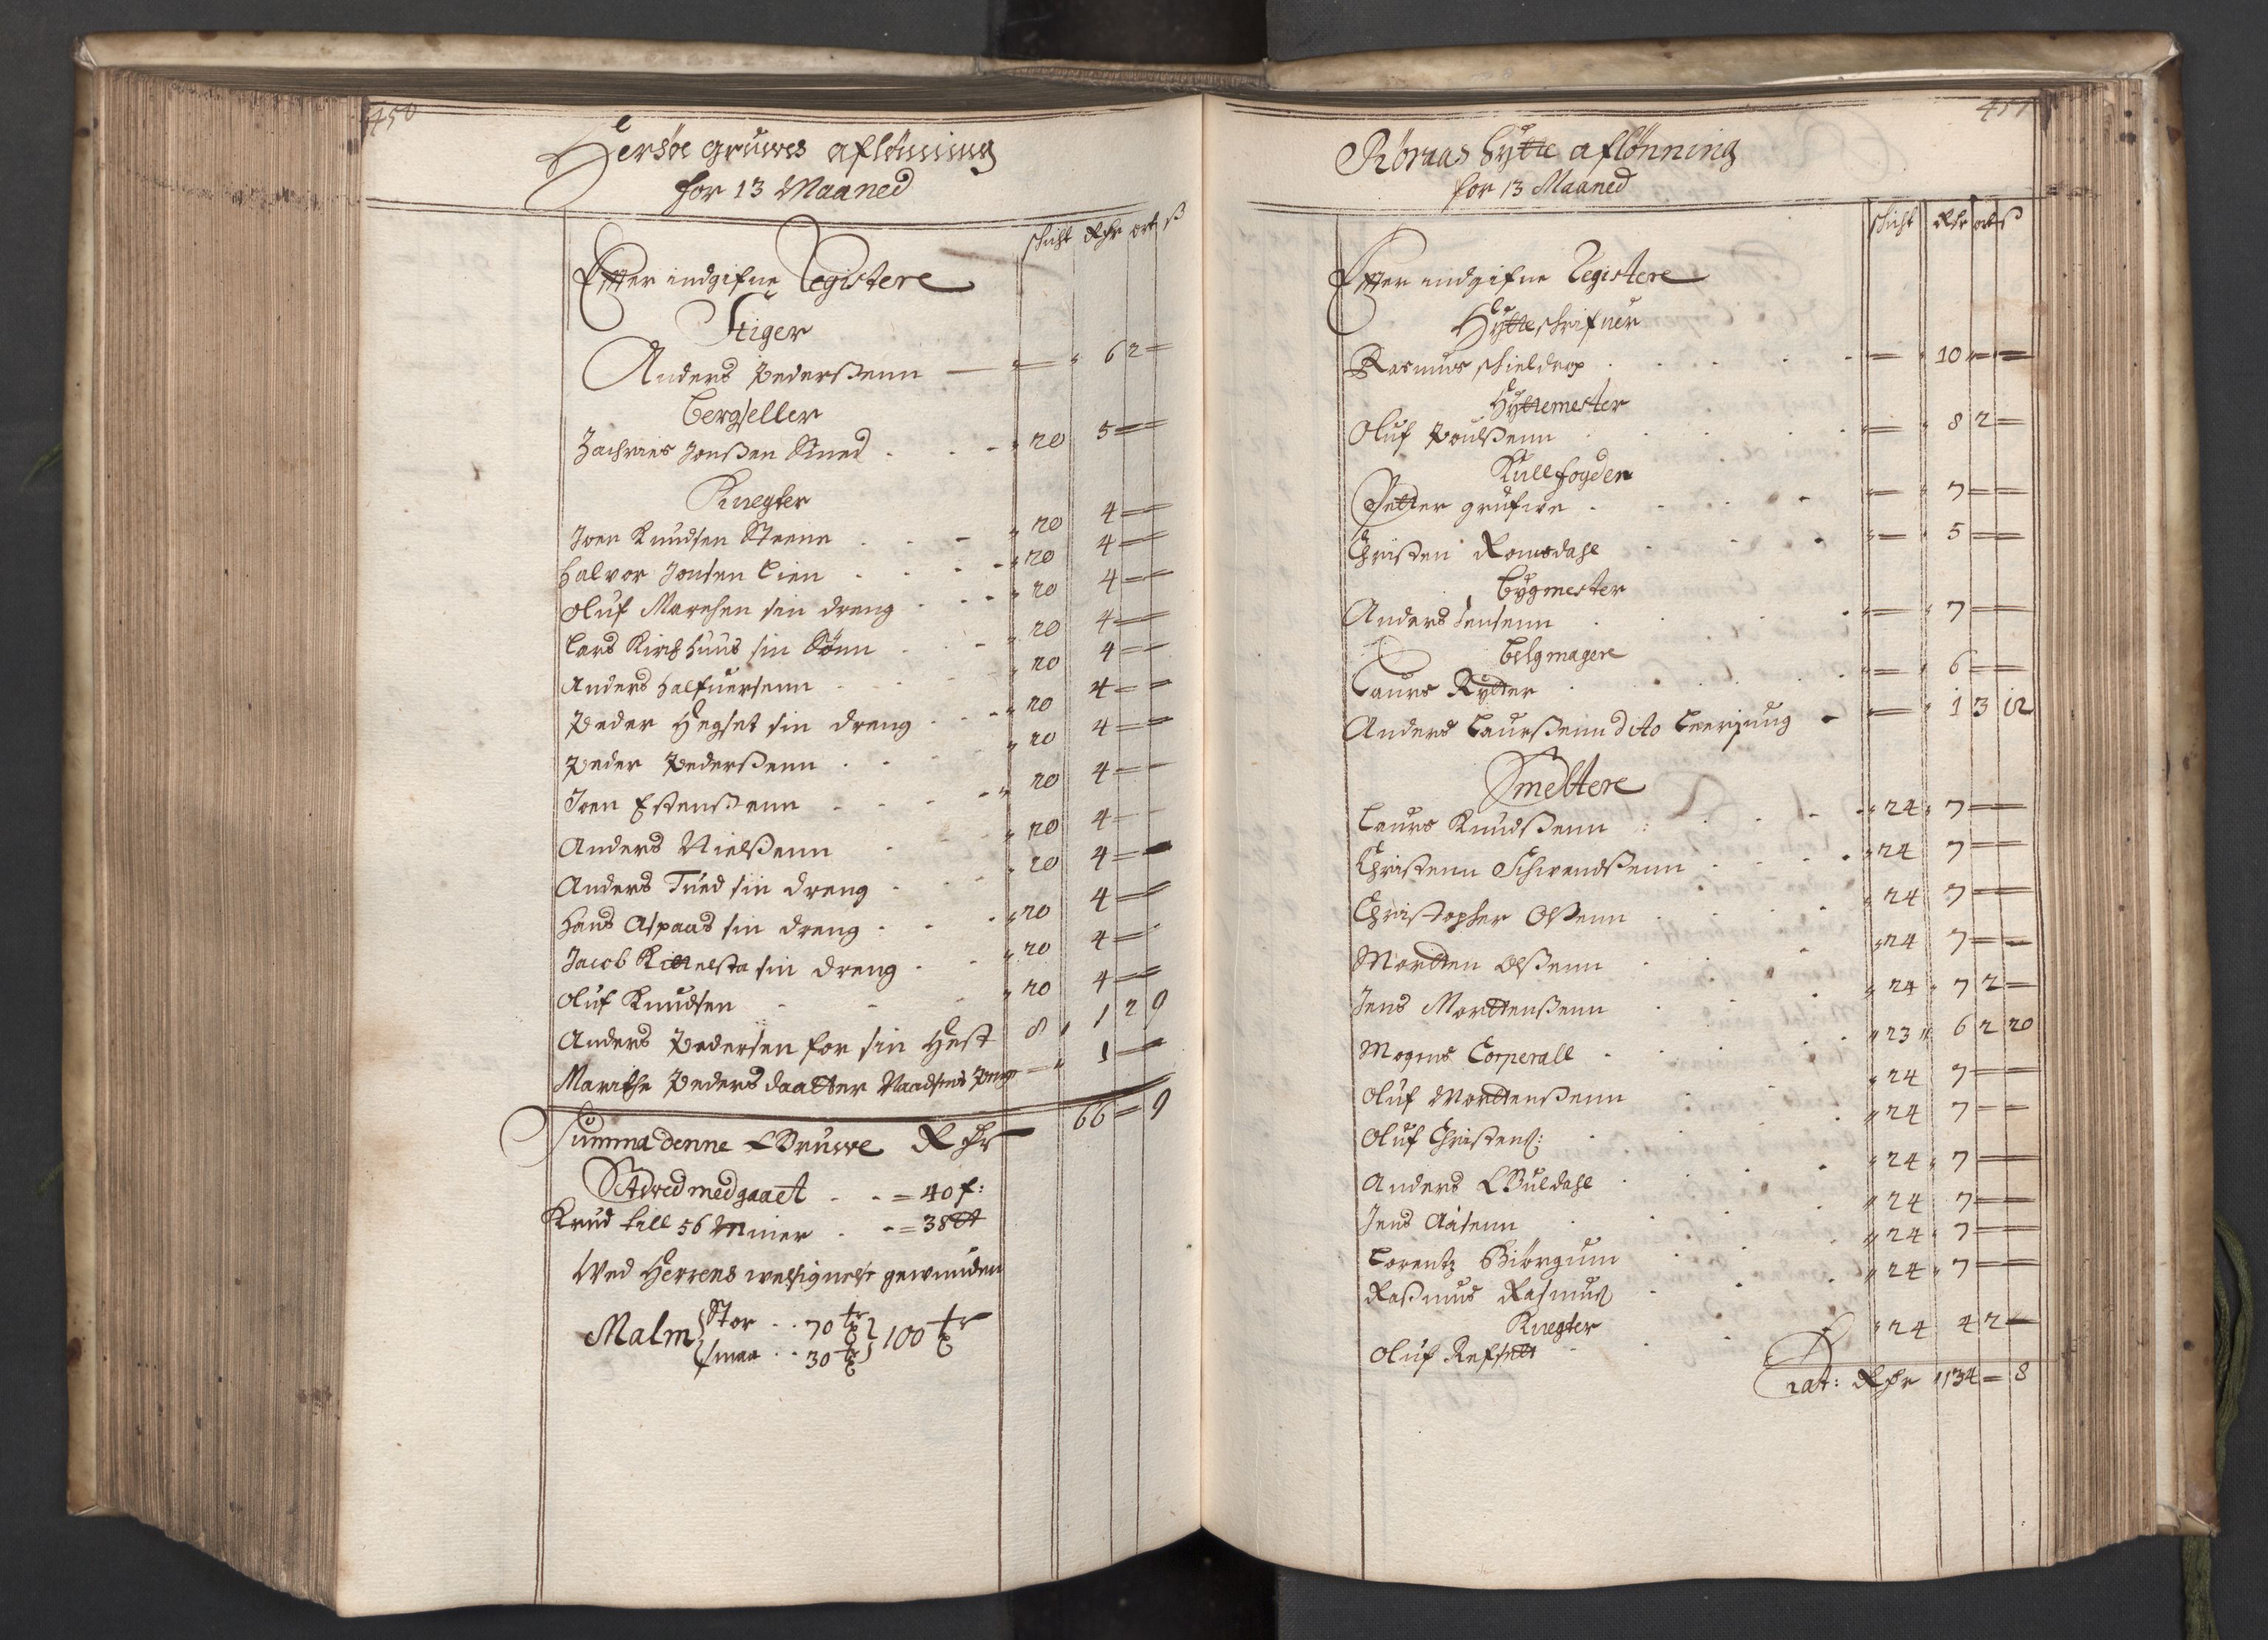 450
Hersøe gruwes aflönning
for 13 Maaned
schicht Rdr ort ß
Effter indgifne Registere
Stiger
Anders Pederßenn — 6 2 =
Bergseller
Zachries Jonßen Smed . . 20 5 =
Knegter
Iver Knudsen Steene . . 20 4 =
Halvor Jonsen Lien . . 20 4 =
Oluf Marchen sin dreng . . 20 4 =
Lars Kirchhuus sin Sönn . . 20 4 =
Anders Halfuersenn . . 20 4 =
Peder Hegset sin dreng . . 20 4 =
Peder Pederßenn . . 20 4 =
Iver Estenßenn . . 20 4 =
Anders Nielßenn . . 20 4 =
Anders Tued sin dreng . . 20 4 =
Hans Aspaas sin dreng . . 20 4 =
Jacob sin dreng . . 20 4 =
Oluf Knudsen . . 20 4 =
Anders Pedersen for sin Hest 8 1 2 9
Marithe Pedersdaatter 1 =
Summa denne Gruwe Rdr 66 = 9
Stdwed medgaaet . . = 40 f:
Krud till 56 Miner . . = 38 tt
Wed Herrens welsignelse gewunden
Malm Stor . . 70 tr
smaa . . 30 tr 100 tr
451
Röraas hytte aflönning
for 13 Maaned
schicht Rdr ort ß
Effter indgifne Registere
Hytteschrifuer
Rasmus schieldrop . . 10 =
Hyttemester
Oluf Poulßenn . . 8 2 =
Kullfogder
Petter grufwe . . 7 =
Christen Romsdahl . . 5 =
Bygmester
Anders Jensenn . . 7 =
Belgmagere
Laurs Rytter . . 6 =
Anders Laurßenn dito Leerjung 1 3 12
Smeltere
Laurs Knudßenn . . 24 7 =
Christenn Schwendßenn . . 24 7 =
Christopher Olßenn . . 24 7 =
Mortten Olßenn . . 24 7 =
Jens Morttenßenn . . 24 7 2 =
Mogens Corperall . . 23 6 2 20
Oluf Morttenßenn . . 24 7 =
Oluf Christens: . . 24 7 =
Anders Guldahl . . 24 7 =
Jens Aasenn . . 24 7 =
Lorentz Biörgum . . 24 7 =
Raßmus Rasmuß . . 24 7 =
Knegter
Oluf Refsett . . 24 4 2 =
Lat: Rdr 134 = 8